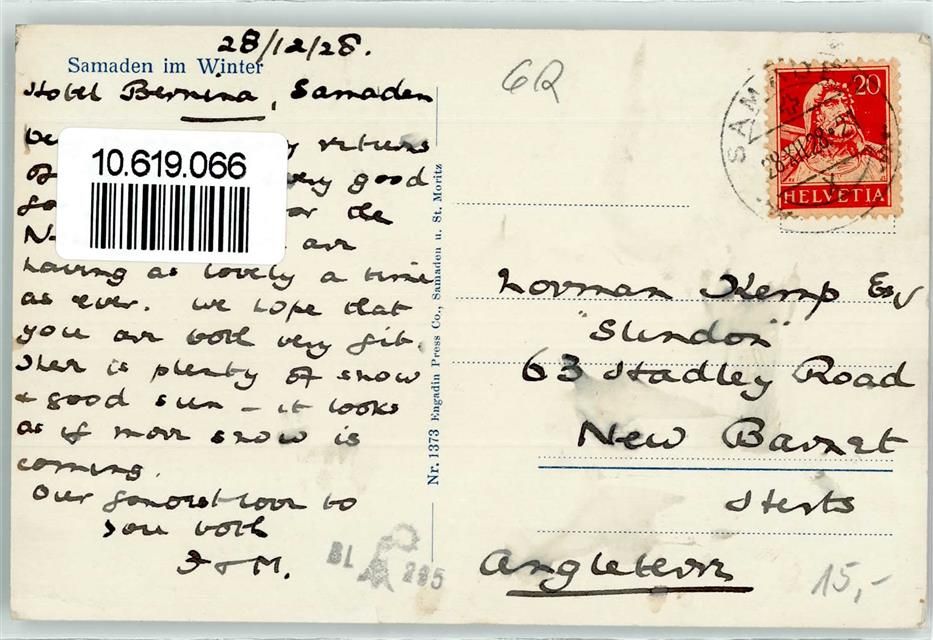 28/12/28.
Samaden im Winter
Hotel Bernina, Samaden
returns
good
for the
are
having as lovely a time
as ever. We hope that
you are both very fit.
There is plenty of snow
& good sun - it looks
as if more snow is
coming.
Our fondest love to
you both
J & M.
10.619.066
Nr. 1373 Engadin Press Co., Samaden u. St. Moritz
BL 285
6R
SAMADEN
28.XII.28
20
HELVETIA
Norman Kemp Esq
"Slindon"
63 Hadley Road
New Barnet
Herts
Angleterre
15,-